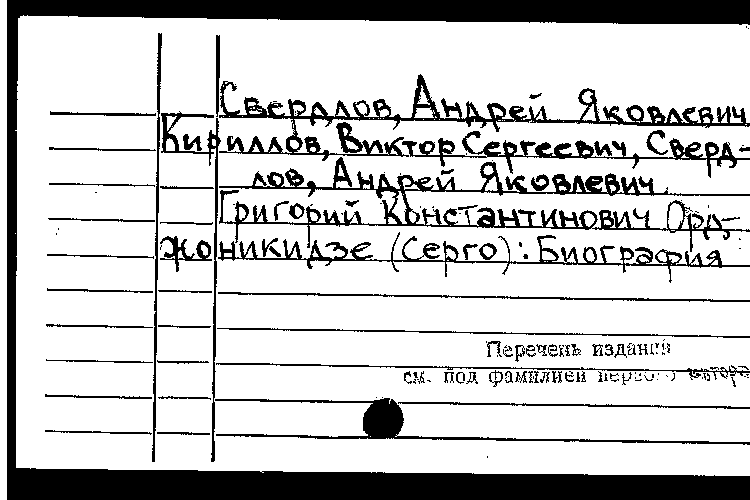 Свердлов, Андрей Яковлевич
Кириллов, Виктор Сергеевич, Сверд-
лов, Андрей Яковлевич
Григорий Константинович Орд-
жоникидзе (Серго): Биография
Перечень изданий
см. под фамилией первого автора